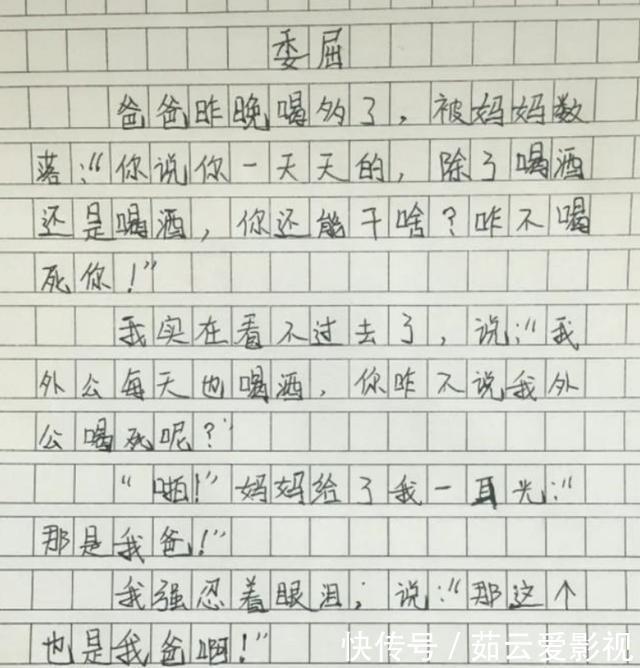 委屈
爸爸昨晚喝多了，被妈妈数
落："你说你一天天的，除了喝酒
还是喝酒，你还能干啥？咋不喝
死你！"
我实在看不过去了，说："我
外公每天也喝酒，你咋不说我外
公喝死呢？"
"啪！"妈妈给了我一耳光："
那是我爸！"
我强忍着眼泪；说："那这个
也是我爸啊！"
快传号／茹云爱影视